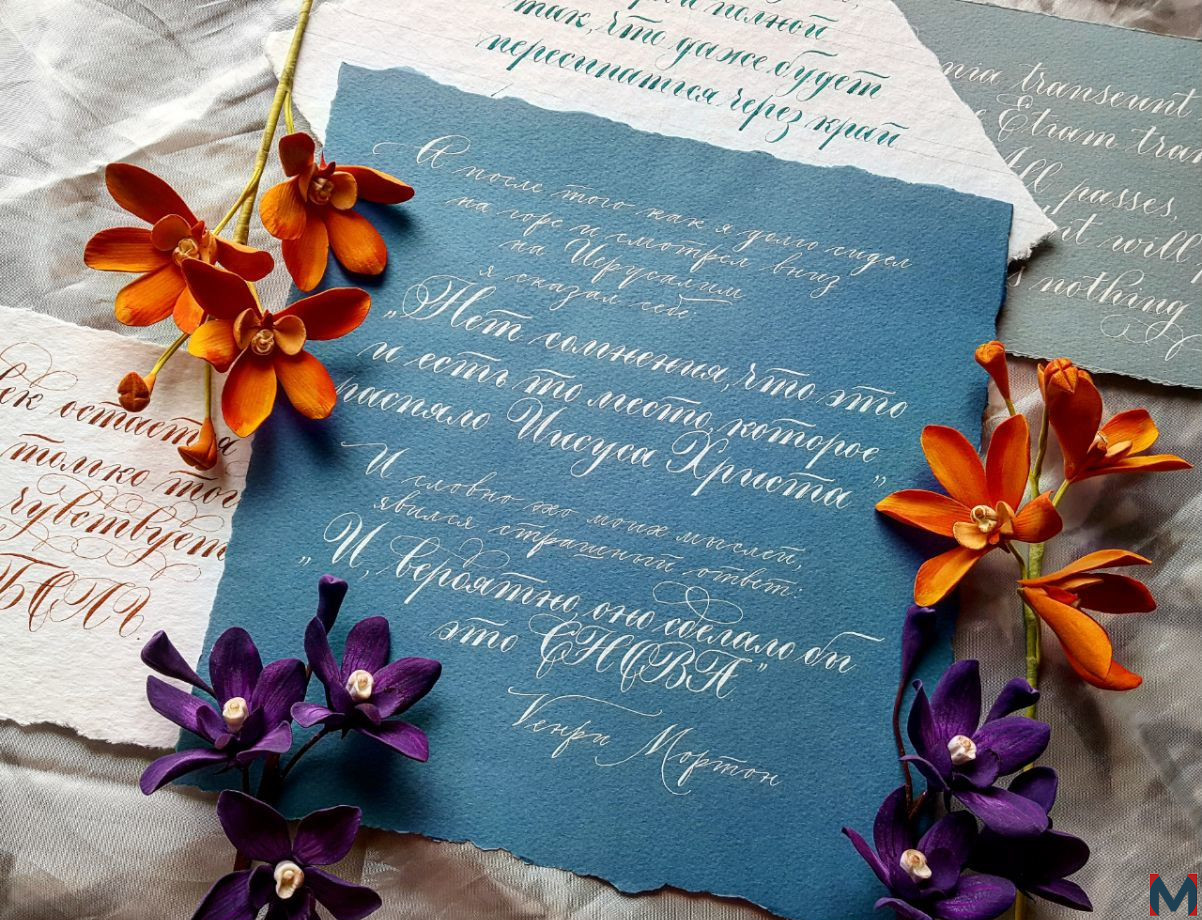 и полной
так, что даже будет
пересыпаться через край
transeunt
Etiam tran
All passes,
nt will
nothing
А после того как я долго сидел
на горе и смотрел вниз
на Иерусалим
я сказал себе:
„Нет сомнения, что это
и есть то место, которое
распяло Иисуса Христа"
И словно эхо моих мыслей,
явился страшный ответ:
„И, вероятно, оно сделало бы
это СНОВА"
Генри Мортон
век остаётся
только тог
чувствует
БОЛЬ.
M